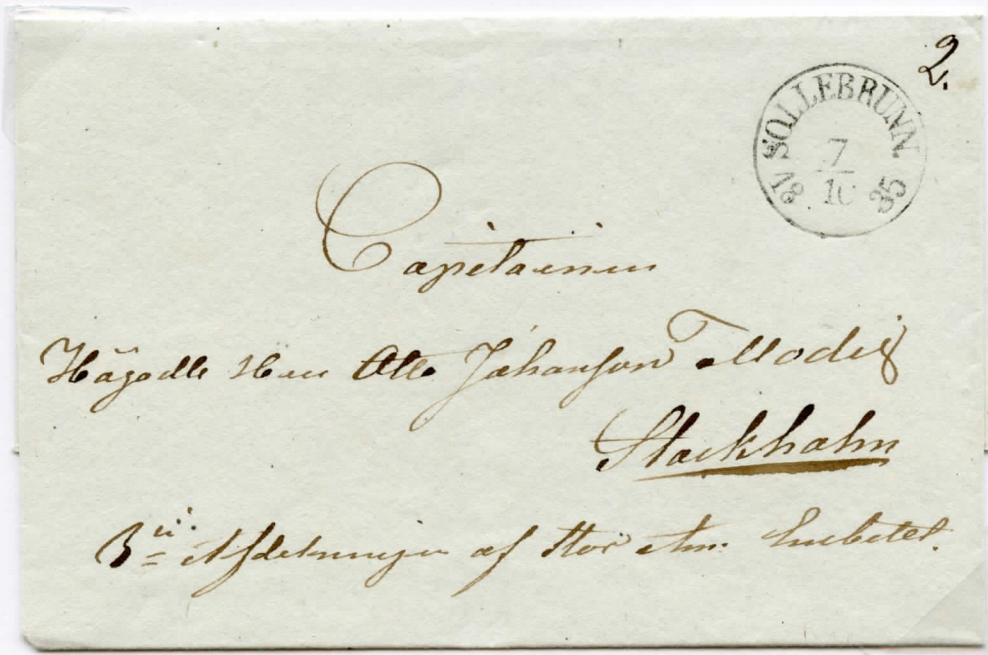 2.
SOLLEBRUNN.
7
10
35
Capitainen
Högädle Herr Otto Johanson Modig
Stockholm
3 Afdelningen af Stor Am: Embetet.